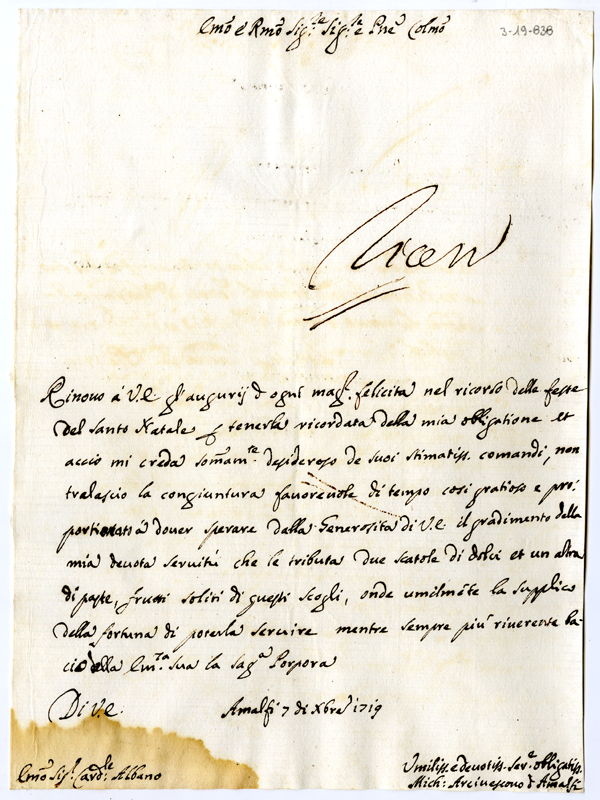 Emo é Rmo Sig.re Sig.re e Pne Colmo
3-19-838
Rinovo á V.E. gl'augurij d ogni mag.r felicita nel ricorso delle feste
del Santo Natale p tenerla ricordata della mia obligatione et
acciò mi creda somam.te desideroso de suoi stimatiss. comandi, non
tralascio la congiuntura favorevole di tempo cosi gratioso e pro:
portionato á dover sperare dalla Generosita di V.E. il gradimento della
mia devota servitú che le tributa due scatole di dolci et un altra
di paste, frutti soliti di questi scogli, onde umilmẽte la supplico
della fortuna di poterla servire mentre sempre piú riverente ba-
cio della Em.za sua la sag.a Porpora
Di V.E. Amalfi 7 di Xbre 1719
Emo Sig.r Card.le Albano
Umiliss. e devotiss. Ser.e obligatiss.
Mich: Arcivescovo d Amalfi